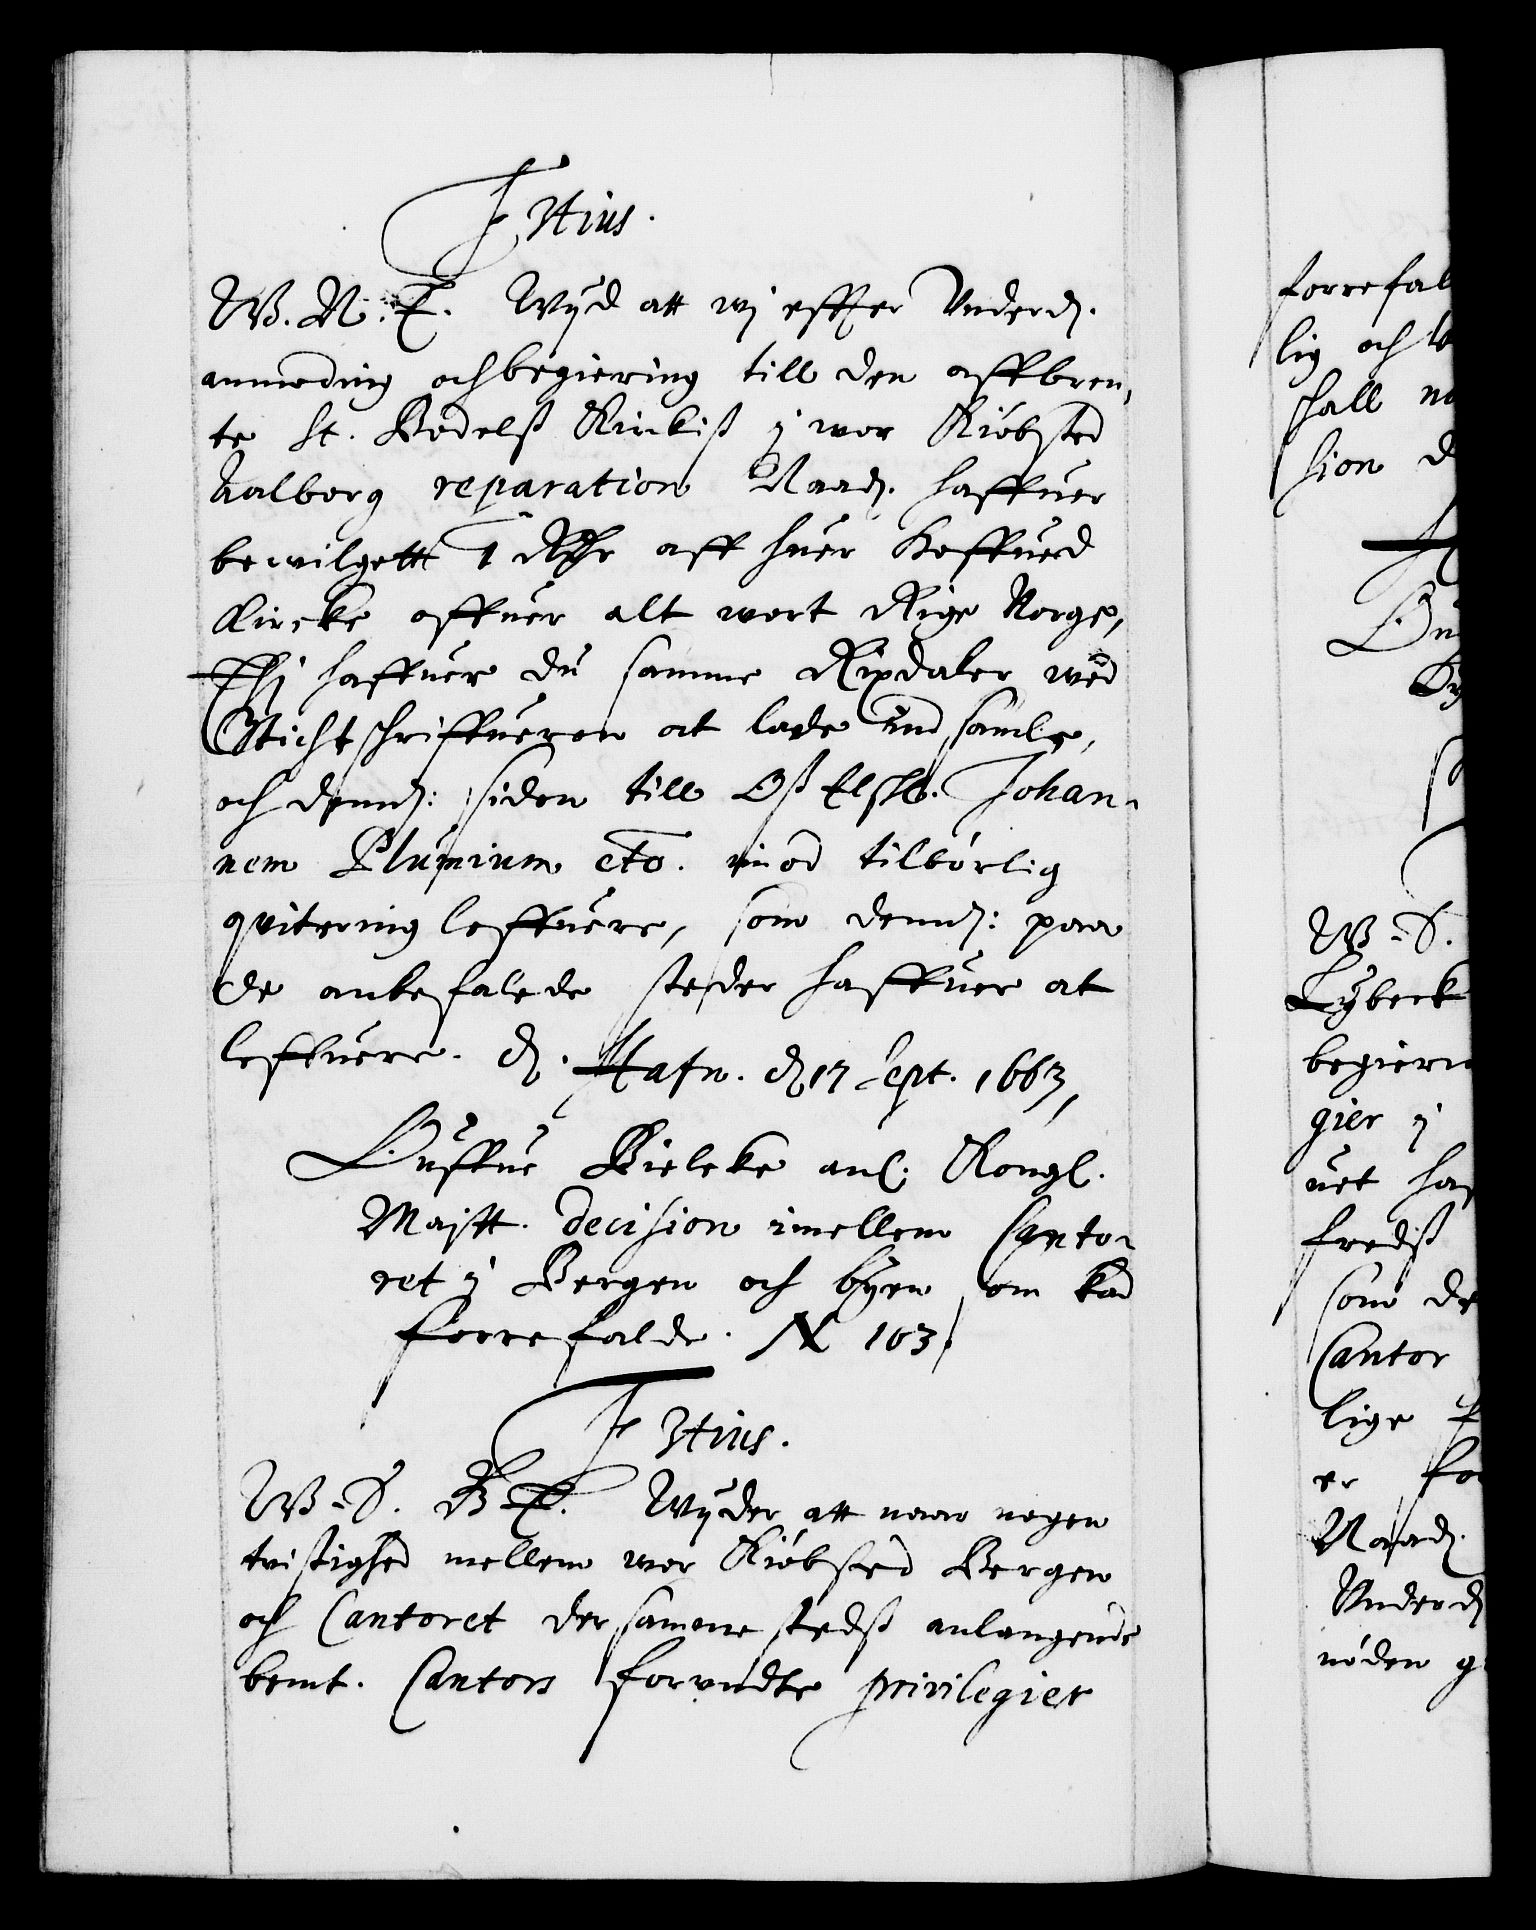 F 3tius.
W. N. T. Wiid att wj effter Underd.
anmoding och begiering till den affbren,
te St. Bodelß Kirckiß i wor Kiöbsted
Aalborg reparation Naad. haffuer
bewilgett 1 Rdr aff huer Hoffued
Kircke offuer alt wort Rige Norge,
Thj haffuer du samme Rixdaler wed
Stichtschriffueren at lade ind samle,
och dennd: siden till Oß Elskl. Johan-
nem Plumium etc. imod tilbörlig
qvitering leffuere, som dennd: paa
de anbefalede steder haffuer at
leffuere. D. Hafn. d 17 Sept. 1663,
Ouffue Bielcke anl. Kongl.
Majtt. decision imellem Canto-
ret i Bergen och byen, om kand
forrefalde. N 103.
F 3tius.
W. S. B. T. Wiider att naar nogen
tvistighed mellem wor Kiöbsted Bergen
och Cantoret dersamme stedß anlangende
bemt. Cantors forundte privilegier
forrefal
lig och
shall
sion d
W. S.
Lybeck
begieri
gier i
uet haf
fredß
som de
Cantor
lige
er
Naad.
Underd
nöden